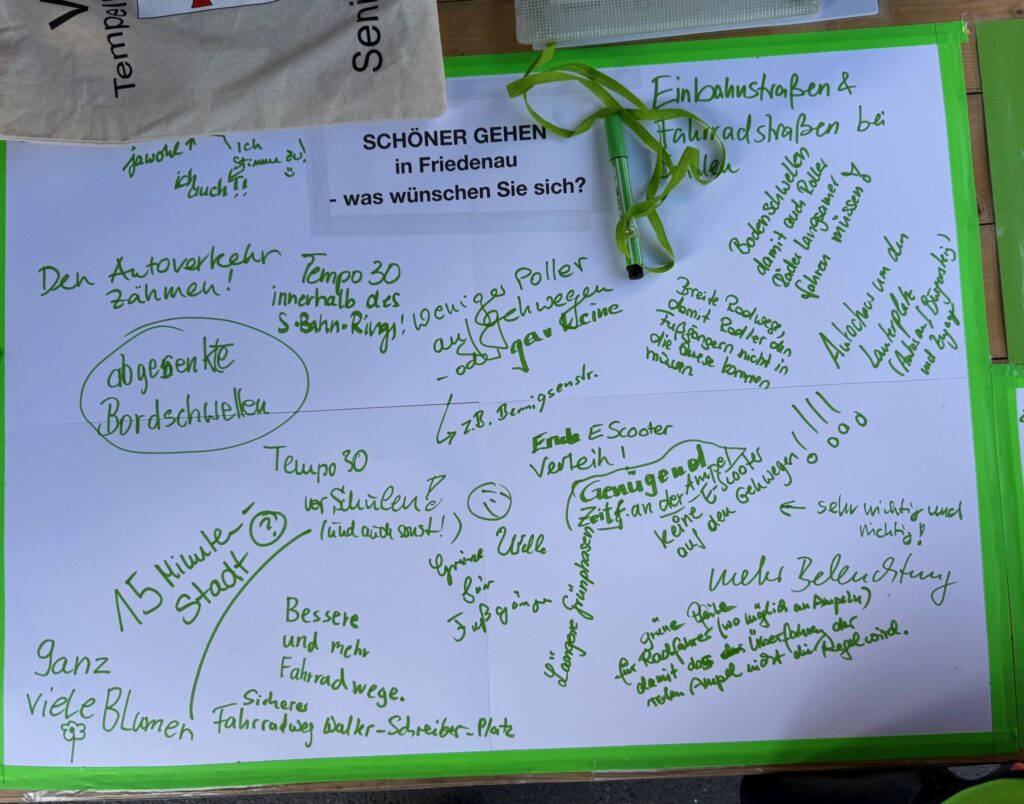 Tempel
Seni
SCHÖNER GEHEN
in Friedenau
- was wünschen Sie sich?
jawohl
ich
stimme zu!
ich
auch!!
Einbahnstraßen &
Fahrradstraßen bei
Bodenschwellen
damit auch Roller
Räder langsamer
fahren müssen
Den Autoverkehr
zähmen!
Tempo 30
innerhalb des
S-Bahn-Rings!
weniger Poller
auf Gehwegen
- oder gar keine
z.B. Bennigsenstr.
Breite Radwege,
damit Radler den
Fußgängern nicht in
die Quere kommen
müssen
um den
Lauterplatz
abgesenkte
Bordschwellen
Tempo 30
vor Schulen!
(und auch sonst!)
Ende E Scooter
Verleih!
Genügend
Zeit f. an der Ampel
Längere Grünphasen
keine E Scooter
auf den Gehwegen!!!!
← sehr wichtig und
richtig!
15 Minuten-
Stadt ?
Grüne Welle
für
Fußgänger
mehr Beleuchtung
grüne Pfeile
für Radfahrer (wo möglich an Ampeln)
damit das Überfahren der
roten Ampel nicht die Regel wird.
Bessere
und mehr
Fahrradwege.
ganz
viele Blumen
Sicherer
Fahrradweg Walter-Schreiber-Platz